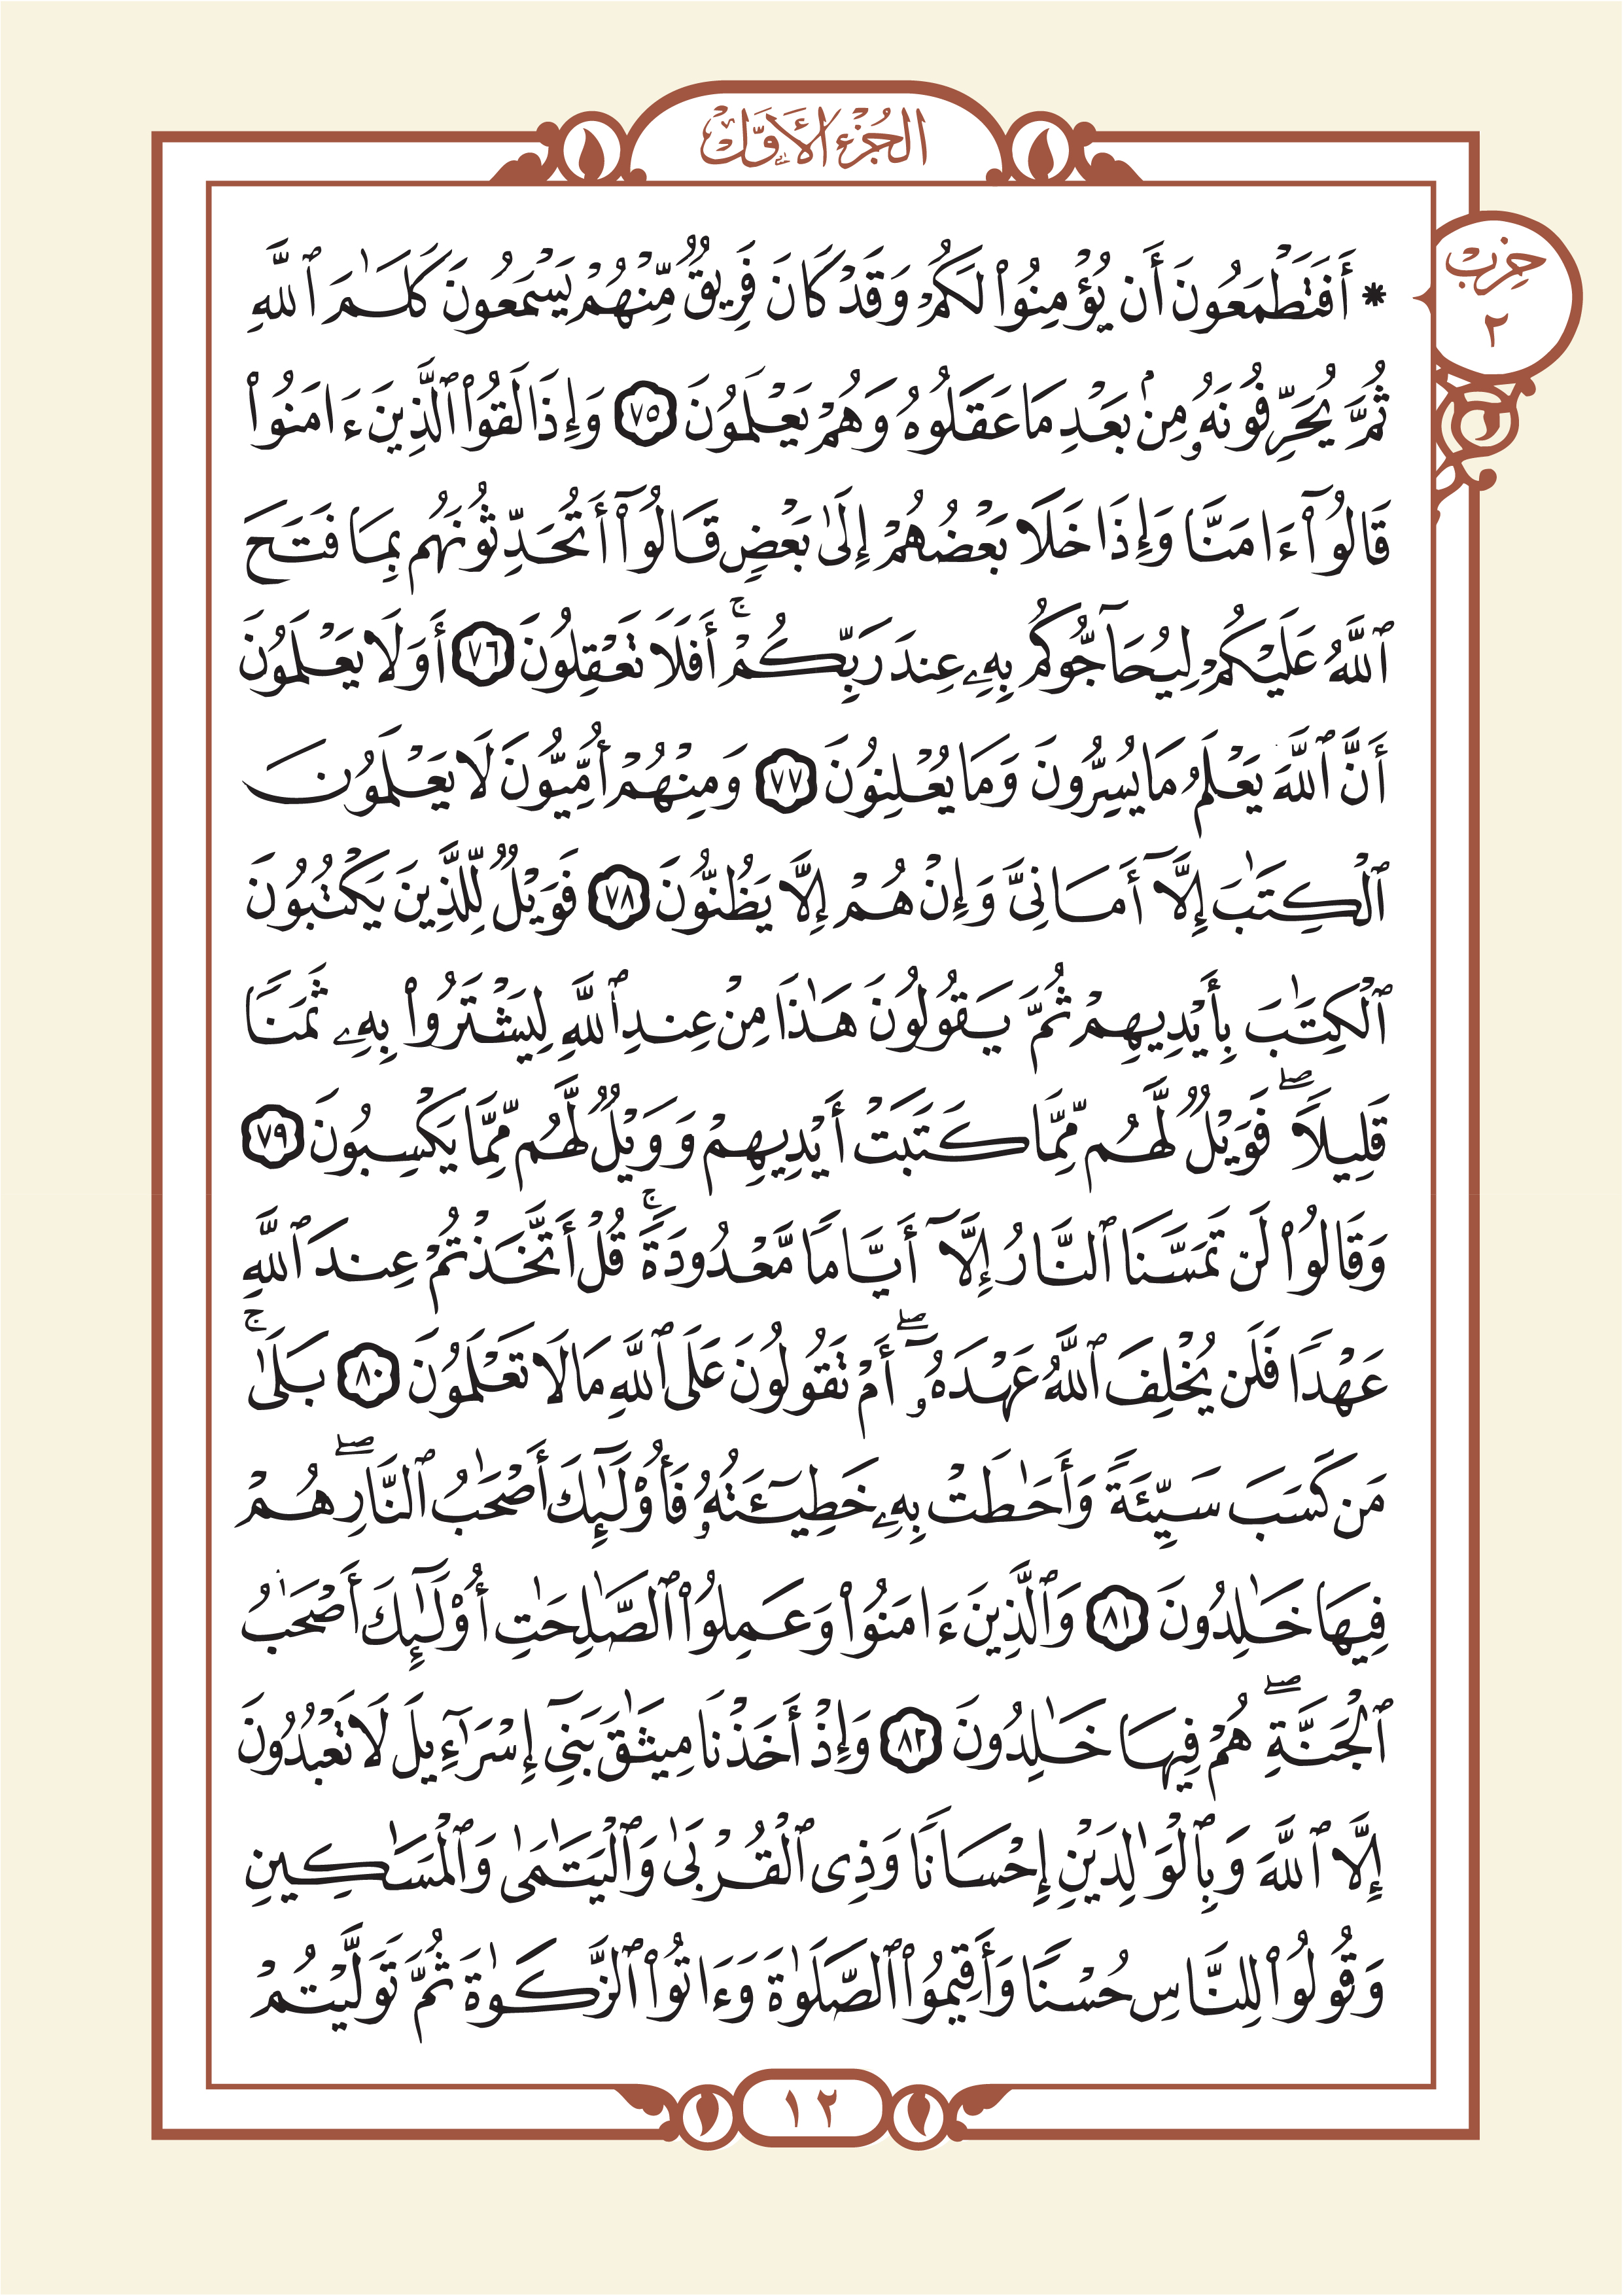 الجُزْءُ الأَوَّل
حِزْب
٢
* أَفَتَطْمَعُونَ أَن يُؤْمِنُوا۟ لَكُمْ وَقَدْ كَانَ فَرِيقٌ مِّنْهُمْ يَسْمَعُونَ كَلَـٰمَ ٱللَّهِ
ثُمَّ يُحَرِّفُونَهُۥ مِنۢ بَعْدِ مَا عَقَلُوهُ وَهُمْ يَعْلَمُونَ ٧٥ وَإِذَا لَقُوا۟ ٱلَّذِينَ ءَامَنُوا۟
قَالُوٓا۟ ءَامَنَّا وَإِذَا خَلَا بَعْضُهُمْ إِلَىٰ بَعْضٍ قَالُوٓا۟ أَتُحَدِّثُونَهُم بِمَا فَتَحَ
ٱللَّهُ عَلَيْكُمْ لِيُحَآجُّوكُم بِهِۦ عِندَ رَبِّكُمْ ۚ أَفَلَا تَعْقِلُونَ ٧٦ أَوَلَا يَعْلَمُونَ
أَنَّ ٱللَّهَ يَعْلَمُ مَا يُسِرُّونَ وَمَا يُعْلِنُونَ ٧٧ وَمِنْهُمْ أُمِّيُّونَ لَا يَعْلَمُونَ
ٱلْكِتَـٰبَ إِلَّآ أَمَانِىَّ وَإِنْ هُمْ إِلَّا يَظُنُّونَ ٧٨ فَوَيْلٌ لِّلَّذِينَ يَكْتُبُونَ
ٱلْكِتَـٰبَ بِأَيْدِيهِمْ ثُمَّ يَقُولُونَ هَـٰذَا مِنْ عِندِ ٱللَّهِ لِيَشْتَرُوا۟ بِهِۦ ثَمَنًا
قَلِيلًا ۖ فَوَيْلٌ لَّهُم مِّمَّا كَتَبَتْ أَيْدِيهِمْ وَوَيْلٌ لَّهُم مِّمَّا يَكْسِبُونَ ٧٩
وَقَالُوا۟ لَن تَمَسَّنَا ٱلنَّارُ إِلَّآ أَيَّامًا مَّعْدُودَةً ۚ قُلْ أَتَّخَذْتُمْ عِندَ ٱللَّهِ
عَهْدًا فَلَن يُخْلِفَ ٱللَّهُ عَهْدَهُۥٓ ۖ أَمْ تَقُولُونَ عَلَى ٱللَّهِ مَا لَا تَعْلَمُونَ ٨٠ بَلَىٰ ۚ
مَن كَسَبَ سَيِّئَةً وَأَحَـٰطَتْ بِهِۦ خَطِيٓـَٔتُهُۥ فَأُو۟لَـٰٓئِكَ أَصْحَـٰبُ ٱلنَّارِ ۖ هُمْ
فِيهَا خَـٰلِدُونَ ٨١ وَٱلَّذِينَ ءَامَنُوا۟ وَعَمِلُوا۟ ٱلصَّـٰلِحَـٰتِ أُو۟لَـٰٓئِكَ أَصْحَـٰبُ
ٱلْجَنَّةِ ۖ هُمْ فِيهَا خَـٰلِدُونَ ٨٢ وَإِذْ أَخَذْنَا مِيثَـٰقَ بَنِىٓ إِسْرَٰٓءِيلَ لَا تَعْبُدُونَ
إِلَّا ٱللَّهَ وَبِٱلْوَٰلِدَيْنِ إِحْسَانًا وَذِى ٱلْقُرْبَىٰ وَٱلْيَتَـٰمَىٰ وَٱلْمَسَـٰكِينِ
وَقُولُوا۟ لِلنَّاسِ حُسْنًا وَأَقِيمُوا۟ ٱلصَّلَوٰةَ وَءَاتُوا۟ ٱلزَّكَوٰةَ ثُمَّ تَوَلَّيْتُمْ
١٢